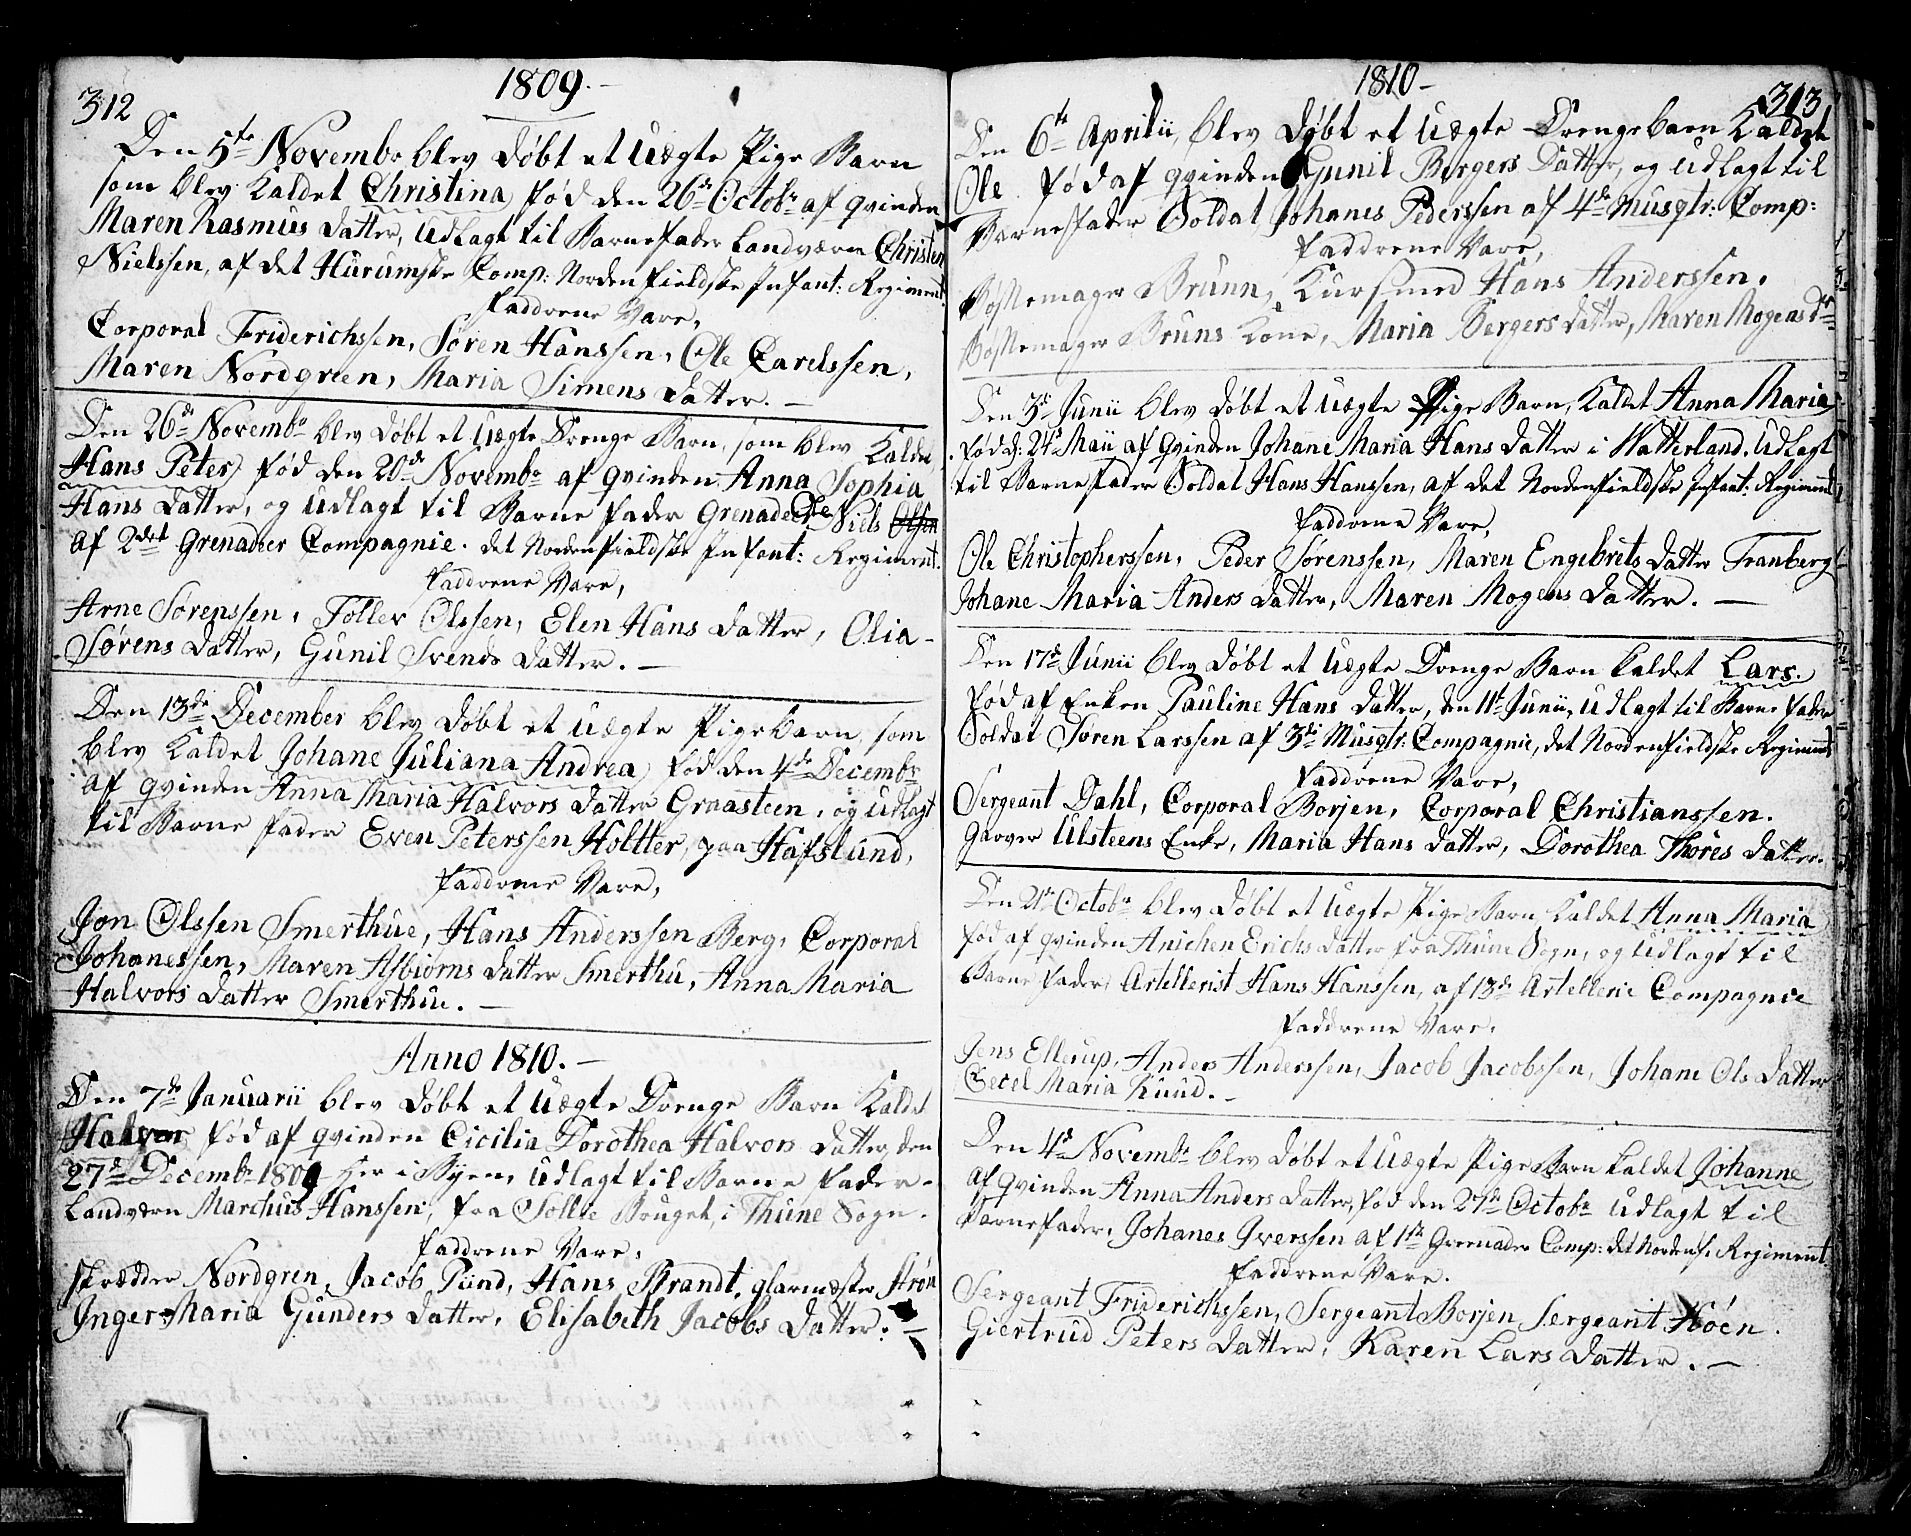 312
1809.-
Den 5te Novembr blev døbt et Uægte Pige Barn
som blev Kaldet Christina, fød den 26de Octobr af qvinden
Maren Rasmus Datter, Udlagt til Barnefader Landværn Christen
Nielssen, af det Hurumske Comp: Nordenfieldske Infant: Regiment.
Faddrene Vare,
Corporal Friderichssen, Søren Hanssen, Ole Carelssen,
Maren Nordgreen, Maria Simens Datter. -
Den 26de Novembr blev døbt et Uægte Drenge Barn, som blev Kaldet
Hans Peter, fød den 20de Novembr af qvinden Anna Sophia
Hans Datter, og Udlagt til Barne fader Grenadeer Ole Niels Olsen
af 2det Grenadeer Compagnie. det Nordenfieldske Infant: Regiment.
Faddrene Vare,
Arne Sørenssen, Toller Olssen, Elen Hans Datter, Olia -
Sørens Datter, Gunil Svends Datter. -
Den 13de December blev døbt et Uægte Pigebarn, som
blev Kaldet Johane Juliana Andrea, fød den 4de Decembr
af qvinden Anna Maria Halvors Datter Graasteen, og Udlagt
til Barne fader Even Peterssen Holtter, paa Hafslund,
Faddrene Vare,
Jon Olssen Smerthue, Hans Anderssen Berg, Corporal
Johanessen, Maren Asbiørns Datter Smerthu, Anna Maria
Halvors Datter Smerthue. -
Anno 1810. -
Den 7de Januarii blev døbt et Uægte Drenge Barn Kaldet
Halvor fød af qvinden Cicilia Dorothea Halvors Datter, den
27de Decembr 1809 her i Byen, Udlagt til Barne fader -
Landværn Marchus Hanssen, fra Sollie Bruget, i Thune Sogn.
Faddrene Vare,
Skrædder Nordgren, Jacob Pund, Hans Brandt, glarmæster Strøm
Inger Maria Gunders Datter, Elisabeth Jacobs Datter. -
1810-
313
Den 6te Aprilii, blev døbt et Uægte Drengebarn Kaldet
Ole fød af qvinden Gunil Borgers Datter, og Udlagt til
Barnefader Soldat Johanes Pederssen af 4de Musqtr: Comp:
Faddrene Vare,
Bøssemager Brunn, Kursmed Hans Anderssen,
Bøssemager Bruns Kone, Maria Bergers Datter, Maren Mogens Dr
Den 3de Junii blev døbt et Uægte Pige Barn, Kaldet Anna Maria
fød d: 24de Maii af qvinden Johane Maria Hans Datter i Vatterland. Udlagt
til Barnefader Soldat Hans Hanssen, af det Nordenfieldske Infant: Regiment
Faddrene Vare,
Ole Christopherssen, Peder Sørenssen, Maren Engebrets Datter Tranberg
Johane Maria Anders Datter, Maren Mogens Datter. -
Den 17de Junii blev døbt et Uægte Drenge Barn kaldet Lars.
fød af Enken Pauline Hans Datter, den 11te Junii, Udlagt til Barne fader
Soldat Søren Larssen af 3de Musqtr: Compagnie, det Nordenfieldske Regiment
Faddrene Vare,
Sergeant Dahl, Corporal Borjen, Corporal Christianssen.
Garver Ulsteens Enke, Maria Hans Datter, Dorothea Thores Datter.
Den 21de Octobr blev døbt et Uægte Pige Barn, Kaldet Anna Maria
fød af qvinden Anichen Erichs Datter fra Thune Sogn, og Udlagt til
Barne fader, Artellerist Hans Hanssen, af 13de Artellerie Compagnie
Faddrene Vare,
Jens Ellerup, Anders Anderssen, Jacob Jacobssen, Johane Ols Datter
Cecel Maria Ruud. -
Den 4de Novembr blev døbt et Uægte Pige Barn kaldet Johanne
af qvinden Anna Anders Datter, fød den 27de Octobr Udlagt til
Barnefader, Johanes Iverssen af 1ste Grenader Comp: det Nordenf. Regiment
Faddrene Vare.
Sergeant Friderichssen, Sergeant Borjen Sergeant Høen.
Giertrud Peters Datter, Karen Lars Datter. -